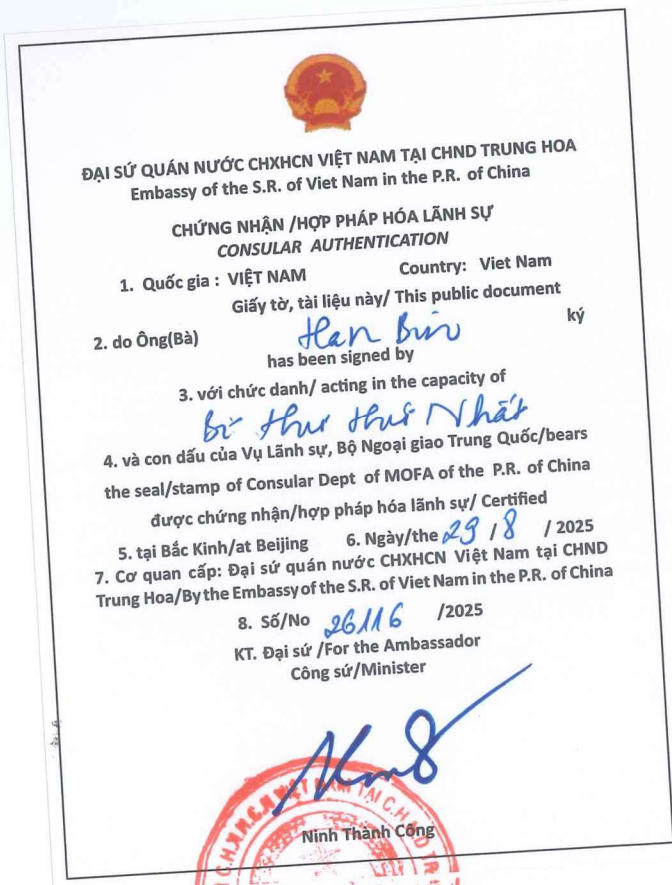 ĐẠI SỨ QUÁN NƯỚC CHXHCN VIỆT NAM TẠI CHND TRUNG HOA
Embassy of the S.R. of Viet Nam in the P.R. of China
CHỨNG NHẬN /HỢP PHÁP HÓA LÃNH SỰ
CONSULAR AUTHENTICATION
1. Quốc gia : VIỆT NAM Country: Viet Nam
Giấy tờ, tài liệu này/ This public document
2. do Ông(Bà) Han Bin ký
has been signed by
3. với chức danh/ acting in the capacity of
Bí thư thứ Nhất
4. và con dấu của Vụ Lãnh sự, Bộ Ngoại giao Trung Quốc/bears
the seal/stamp of Consular Dept of MOFA of the P.R. of China
được chứng nhận/hợp pháp hóa lãnh sự/ Certified
5. tại Bắc Kinh/at Beijing 6. Ngày/the 29 / 8 / 2025
7. Cơ quan cấp: Đại sứ quán nước CHXHCN Việt Nam tại CHND
Trung Hoa/By the Embassy of the S.R. of Viet Nam in the P.R. of China
8. Số/No 26116 /2025
KT. Đại sứ /For the Ambassador
Công sứ/Minister
Ninh Thành Công